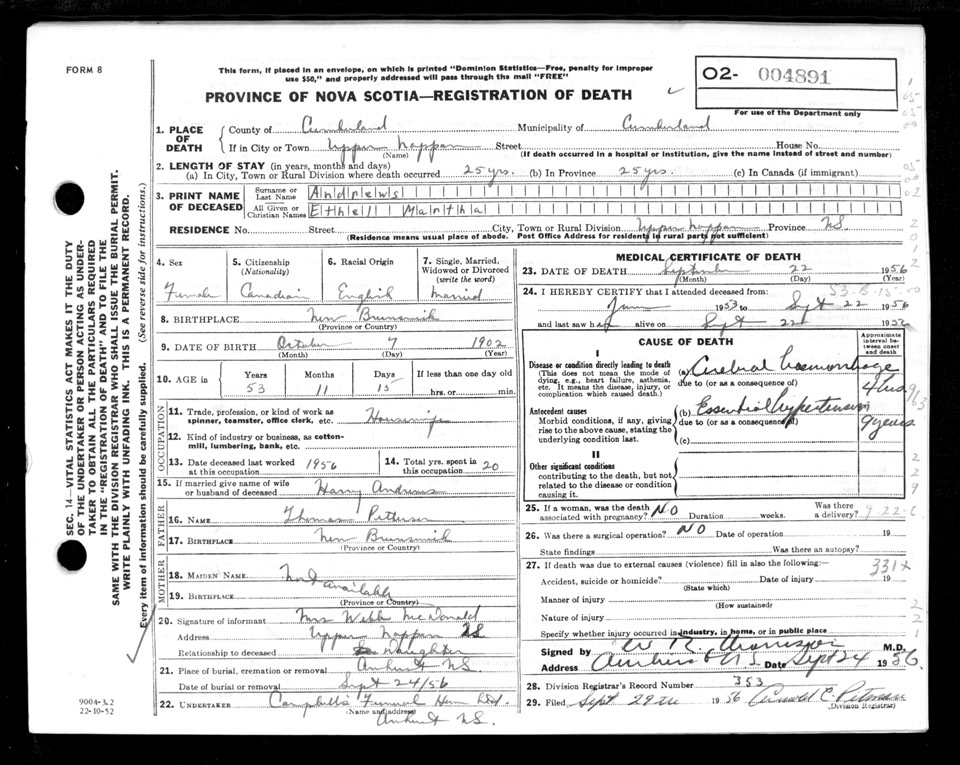 FORM 8
This form, if placed in an envelope, on which is printed "Dominion Statistics—Free, penalty for improper
use $50," and properly addressed will pass through the mail "FREE"
O2- 004891
For use of the Department only
PROVINCE OF NOVA SCOTIA—REGISTRATION OF DEATH
1. PLACE OF DEATH
County of Cumberland Municipality of Cumberland
If in City or Town Upper Nappan Street House No.
(Name) (If death occurred in a hospital or institution, give the name instead of street and number)
2. LENGTH OF STAY (in years, months and days)
(a) In City, Town or Rural Division where death occurred 25 yrs. (b) In Province 25 yrs. (c) In Canada (if immigrant)
3. PRINT NAME OF DECEASED
Surname or Last Name Andrews
All Given or Christian Names Ethel Martha
RESIDENCE No. Street City, Town or Rural Division Upper Nappan Province NS
(Residence means usual place of abode. Post Office Address for residents in rural parts not sufficient)
4. Sex Female
5. Citizenship (Nationality) Canadian
6. Racial Origin English
7. Single, Married, Widowed or Divorced (write the word) Married
8. BIRTHPLACE New Brunswick
(Province or Country)
9. DATE OF BIRTH October 7 1902
(Month) (Day) (Year)
10. AGE in Years 53 Months 11 Days 15 If less than one day old hrs. or min.
OCCUPATION
11. Trade, profession, or kind of work as spinner, teamster, office clerk, etc. Housewife
12. Kind of industry or business, as cotton-mill, lumbering, bank, etc.
13. Date deceased last worked at this occupation 1956
14. Total yrs. spent in this occupation 20
15. If married give name of wife or husband of deceased Harry Andrews
FATHER
16. NAME Thomas Patterson
17. BIRTHPLACE New Brunswick
(Province or Country)
MOTHER
18. MAIDEN NAME Not available
19. BIRTHPLACE
(Province or Country)
20. Signature of informant Mrs Webb McDonald
Address Upper Nappan NS
Relationship to deceased Daughter
21. Place of burial, cremation or removal Amherst NS.
Date of burial or removal Sept 24/56
22. UNDERTAKER Campbells Funeral Home Ltd.
(Name and address) Amherst NS.
MEDICAL CERTIFICATE OF DEATH
23. DATE OF DEATH September 22 1956
(Month) (Day) (Year)
24. I HEREBY CERTIFY that I attended deceased from:
June 1953 to Sept 22 1956
and last saw her alive on Sept 22 1956
CAUSE OF DEATH
Approximate interval between onset and death
I
Disease or condition directly leading to death (a) Cerebral haemorrhage
(This does not mean the mode of dying, e.g., heart failure, asthenia, etc. It means the disease, injury, or complication which caused death.)
due to (or as a consequence of) 4 hrs
Antecedent causes (b) Essential hypertension
Morbid conditions, if any, giving rise to the above cause, stating the underlying condition last.
due to (or as a consequence of) 9 years
(c)
II
Other significant conditions
contributing to the death, but not related to the disease or condition causing it.
25. If a woman, was the death associated with pregnancy? NO Duration weeks. Was there a delivery?
26. Was there a surgical operation? NO Date of operation 19
State findings Was there an autopsy?
27. If death was due to external causes (violence) fill in also the following:— 331x
Accident, suicide or homicide? Date of injury 19
(State which)
Manner of injury
(How sustained)
Nature of injury
Specify whether injury occurred in industry, in home, or in public place
Signed by M.D.
Address Amherst N.S. Date Sept 24 1956.
28. Division Registrar's Record Number 353
29. Filed Sept 29th 1956
(Division Registrar)
SEC. 14—VITAL STATISTICS ACT MAKES IT THE DUTY
OF THE UNDERTAKER OR PERSON ACTING AS UNDER-
TAKER TO OBTAIN ALL THE PARTICULARS REQUIRED
IN THE "REGISTRATION OF DEATH" AND TO FILE THE
SAME WITH THE DIVISION REGISTRAR WHO SHALL ISSUE THE BURIAL PERMIT.
WRITE PLAINLY WITH UNFADING INK. THIS IS A PERMANENT RECORD.
Every item of information should be carefully supplied. (See reverse side for instructions.)
9004-3.2
22-10-52